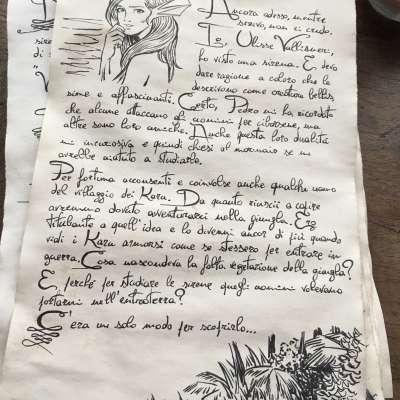 Ancora adesso, mentre
scrivo, non ci credo.
Io, Ulisse Vallisneri,
ho visto una sirena. E devo
dare ragione a coloro che le
descrivono come creature bellis_
sime e affascinanti. Certo, Pedro mi ha ricordato
che alcune attaccano gli uomini per cibarsene, ma
altre sono loro amiche. Anche questa loro dualità
mi incuriosiva e quindi chiesi al marinaio se mi
avrebbe aiutato a studiarle.
Per fortuna acconsentì e coinvolse anche qualche uomo
del villaggio dei Karu. Da quanto riuscii a capire
avremmo dovuto avventurarci nella giungla. Ero
titubante a quell'idea e lo divenni ancor di più quando
vidi i Karu armarsi come se stessero per entrare in
guerra. Cosa nascondeva la folta vegetazione della giungla?
E, perché per studiare le sirene quegli uomini volevano
portarmi nell'entroterra?
C'era un solo modo per scoprirlo...